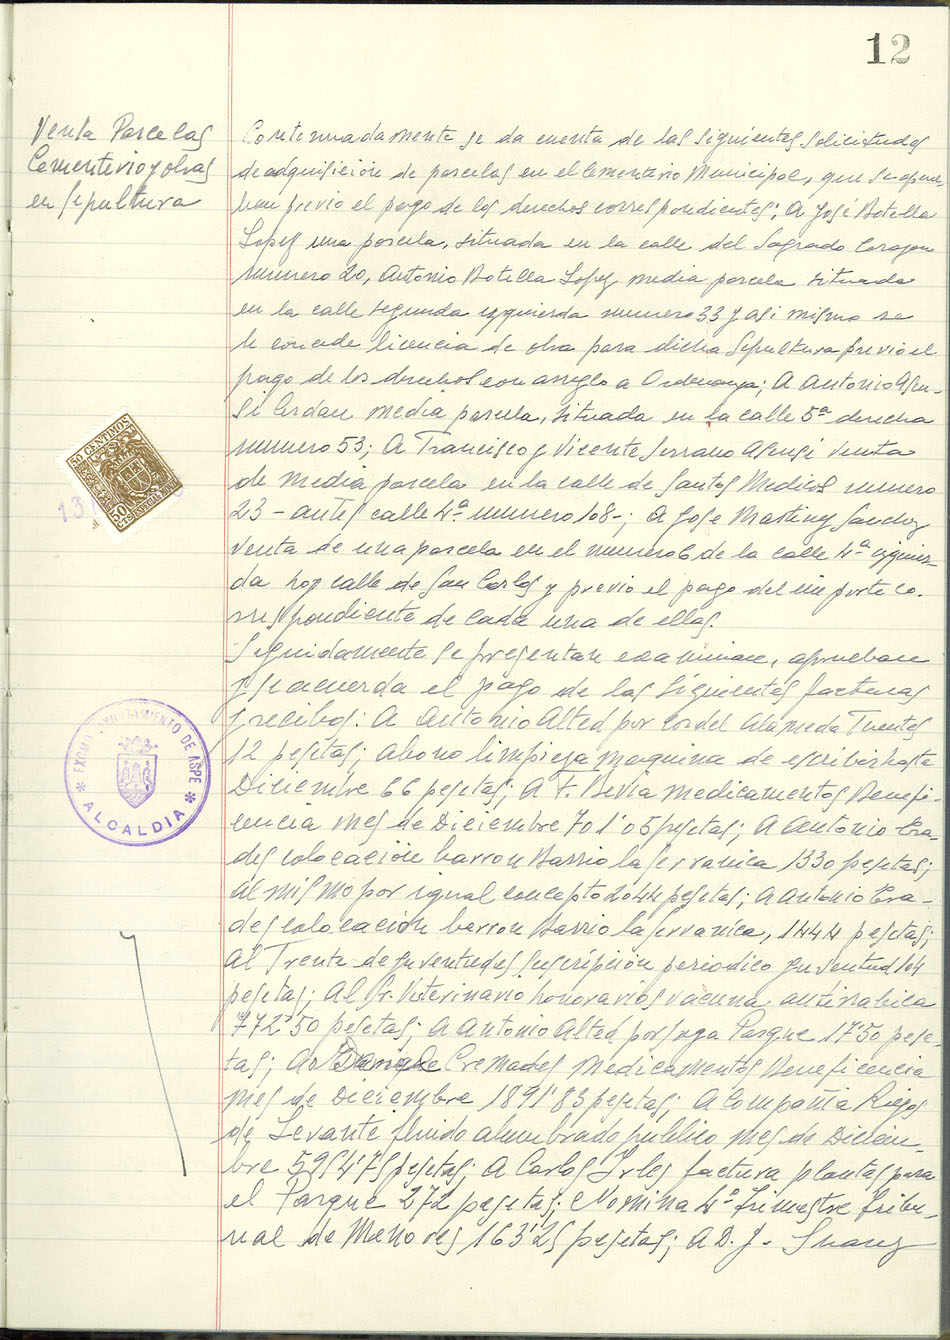 12
Venta Parcelas
Cementerio y obras
en sepultura
Continuadamente se da cuenta de las siguientes solicitudes
de adquisición de parcelas en el Cementerio Municipal, que se aprue-
ban previo el pago de los derechos correspondientes; A José Botella
Lopez una parcela, situada en la calle del Sagrado Corazon
numero 20, Antonio Botella Lopez, media parcela situada
en la calle segunda izquierda numero 33 y asi mismo se
le concede licencia de obra para dicha sepultura previo el
pago de los derechos con arreglo a Ordenanza; A Antonio Asen-
si Cerdan media parcela, situada en la calle 5ª derecha
numero 53; A Francisco y Vicente Serrano Asensi venta
de media parcela en la calle de Santos Medicos numero
23 - antes calle 4ª numero 108-; A Jose Martinez Sanchez
venta de una parcela en el numero 6 de la calle 4ª izquier-
da hoy calle de San Carlos y previo el pago del importe co-
rrespondiente de cada una de ellas.
Seguidamente se presentan examinan, aprueban
y se acuerda el pago de las siguientes facturas
y recibos: A Antonio Alted por cordel Alameda Fuentes
12 pesetas; abono limpieza maquina de escribir hasta
Diciembre 66 pesetas; A F. Bevia medicamentos Benefi-
cencia mes de Diciembre 701'05 pesetas; A Antonio Cra-
des colocación barron Barrio la Serranica 1330 pesetas;
al mismo por igual concepto 2044 pesetas; A Antonio Cra-
des colocación barron Barrio la Serranica, 1444 pesetas;
Al Frente de Juventudes suscripción periodico Juventud 104
pesetas; Al Sr. Veterinario honorarios vacuna antirrabica
772'50 pesetas; A Antonio Alted por soga Parque 17'50 pese-
tas; A Enrique Cremades Medicamentos Beneficencia
mes de Diciembre 1891'83 pesetas; A Compañia Riegos
de Levante fluido alumbrado publico mes de Diciem-
bre 5954'75 pesetas; A Carlos Irles factura plantas para
el Parque 272 pesetas; Nomina 4º trimestre Tribu-
nal de Menores 163'25 pesetas; A D. J. Suarez
50 CENTIMOS
50
CTS
EXCMO. AYUNTAMIENTO DE ASPE
* ALCALDIA *